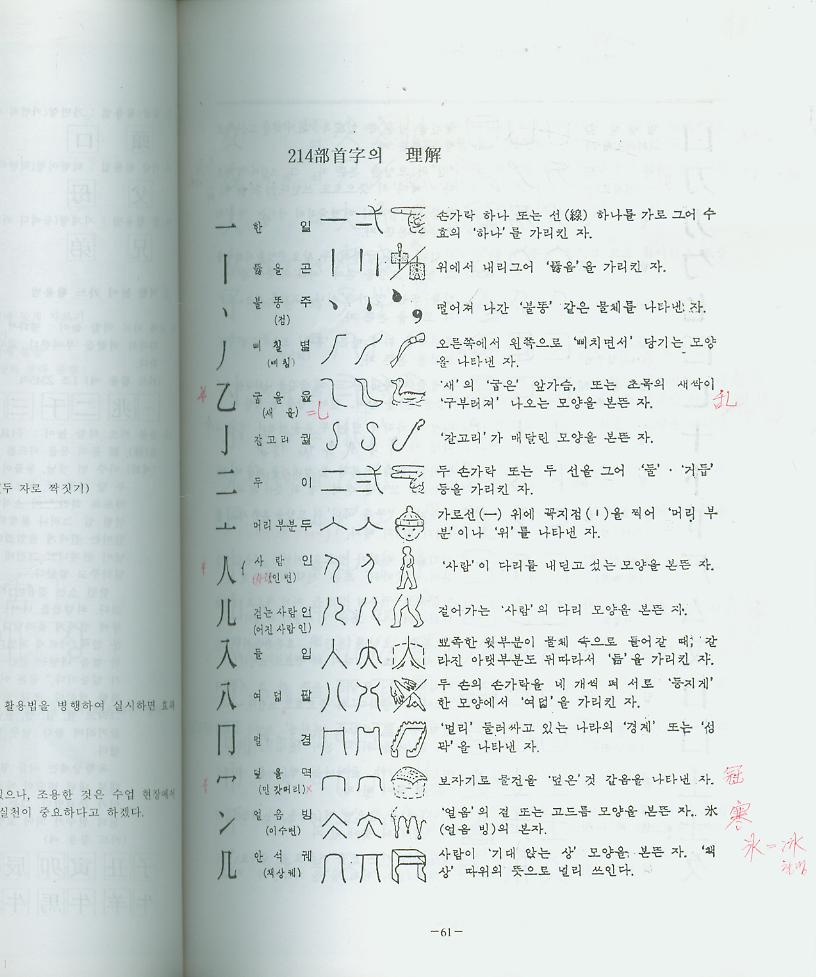 두 자로 짝짓기)
활용법을 병행하여 실시하면 효과
있으나, 조용한 것은 수업 현장에서
실천이 중요하다고 하겠다.
214部首字의 理解
一 한 일 손가락 하나 또는 선(線) 하나를 가로 그어 수
효의 '하나'를 가리킨 자.
丨 뚫을 곤 위에서 내리그어 '뚫음'을 가리킨 자.
丶 불똥 주 떨어져 나간 '불똥' 같은 물체를 나타낸 자.
(점)
丿 삐칠 별 오른쪽에서 왼쪽으로 '삐치면서' 당기는 모양
(삐침) 을 나타낸 자.
乙 굽을 을 '새'의 '굽은' 앞가슴, 또는 초목의 새싹이
(새 을) =乚 '구부러져' 나오는 모양을 본뜬 자. 乱
亅 갈고리 궐 '갈고리'가 매달린 모양을 본뜬 자.
二 두 이 두 손가락 또는 두 선을 그어 '둘'·'거듭'
등을 가리킨 자.
亠 머리부분 두 가로선(一) 위에 꼭지점(丨)을 찍어 '머리 부
분'이나 '위'를 나타낸 자.
人 亻 사람 인 '사람'이 다리를 내딛고 섰는 모양을 본뜬 자.
인변)
儿 걷는사람 인 걸어가는 '사람'의 다리 모양을 본뜬 자.
(어진사람인)
入 들 입 뾰족한 윗부분이 물체 속으로 들어갈 때, 갈
라진 아랫부분도 뒤따라서 '듦'을 가리킨 자.
八 여덟 팔 두 손의 손가락을 네 개씩 펴 서로 '등지게'
한 모양에서 '여덟'을 가리킨 자.
冂 멀 경 '멀리' 둘러싸고 있는 나라의 '경계' 또는 '성
곽'을 나타낸 자.
冖 덮을 멱 보자기로 물건을 '덮은'것 같음을 나타낸 자. 冠
(민갓머리)×
冫 얼음 빙 '얼음'의 결 또는 고드름 모양을 본뜬 자. 氷
(이수변) (얼음 빙)의 본자. 寒
氷=冰
几 안석 궤 사람이 '기대 앉는 상' 모양을 본뜬 자. '책
(책상궤) 상' 따위의 뜻으로 널리 쓰인다.
-61-